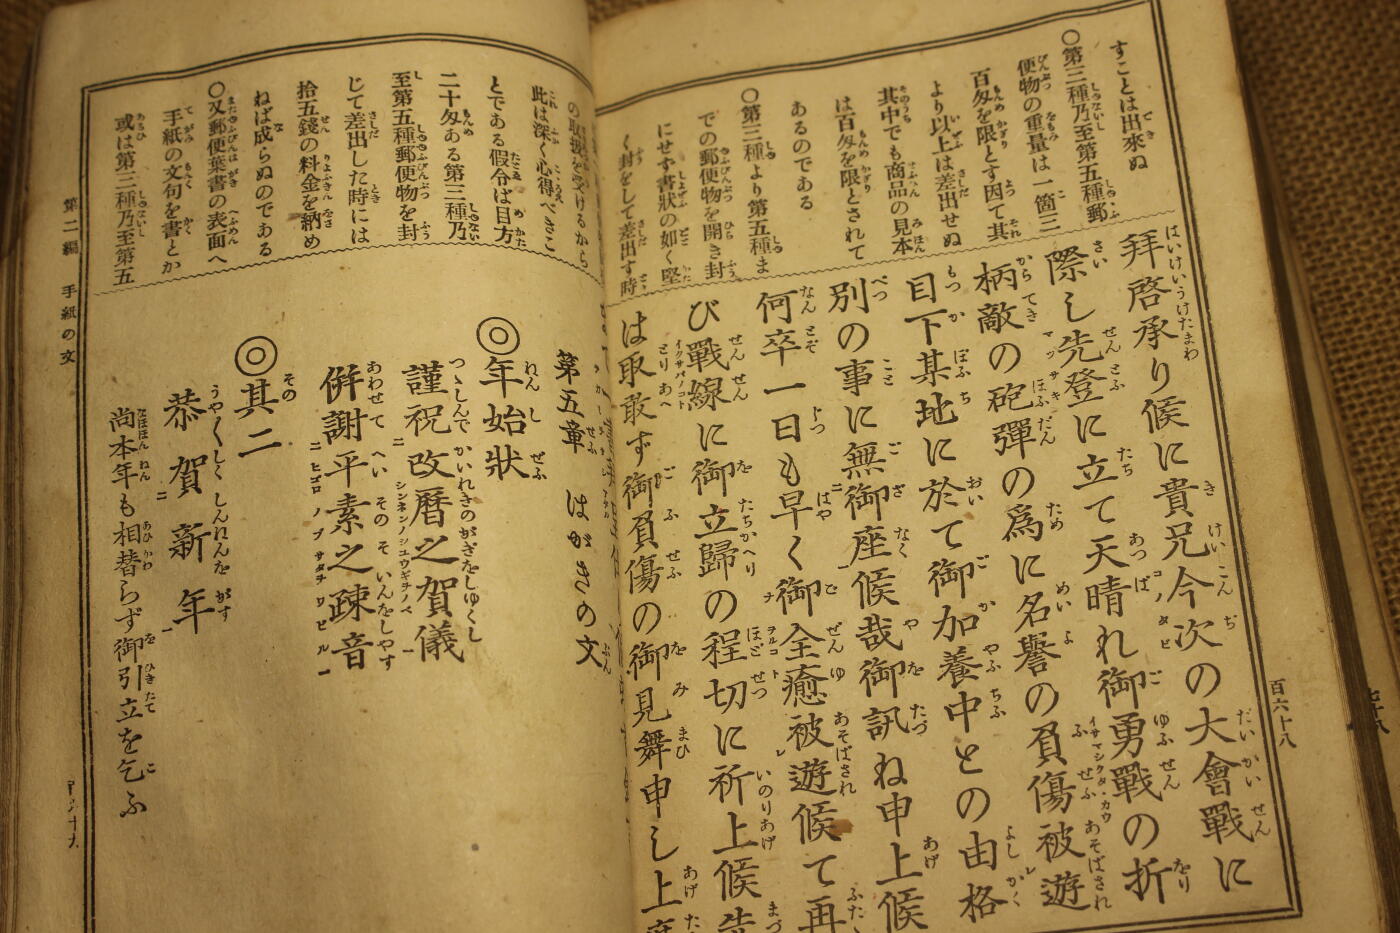 すことは出來ぬ
○第三種乃至第五種郵
便物の重量は一箇三
百匁を限とす因て其
より以上は差出せぬ
其中でも商品の見本
は百匁を限とされて
あるのである
○第三種より第五種ま
での郵便物を開き封
にせず書狀の如く堅
く封をして差出す時
拜啓承り候に貴兄今次の大會戰に
際し先登に立て天晴れ御勇戰の折
柄敵の砲彈の爲に名譽の負傷被遊
目下某地に於て御加養中との由格
別の事に無御座候哉御訊ね申上候
何卒一日も早く御全癒被遊候て再
び戰線に御立歸の程切に祈上候
は取敢ず御負傷の御見舞申し上
百六十八
の取扱を受けるから
此は深く心得べきこ
とである假令ば目方
二十匁ある第三種乃
至第五種郵便物を封
じて差出した時には
拾五錢の料金を納め
ねば成らぬのである
○又郵便葉書の表面へ
手紙の文句を書とか
或は第三種乃至第五
第五章 はがきの文
◎年始狀
謹祝改曆之賀儀
併謝平素之疎音
◎其二
恭賀新年
尚本年も相替らず御引立を乞ふ
第二編 手紙の文